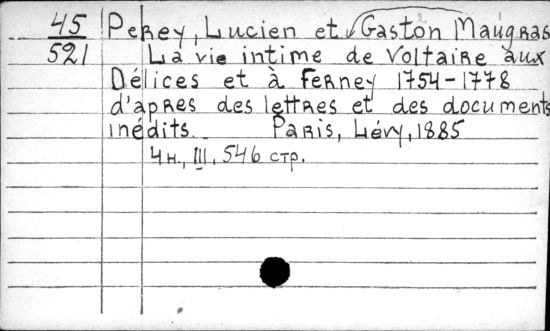 45 Perey, Lucien et Gaston Maugras
521 La vie intime de Voltaire aux
Délices et à Ferney 1754-1778
d'après des lettres et des documents
inédits. Paris, Lévy, 1885
4н., III, 546 стр.